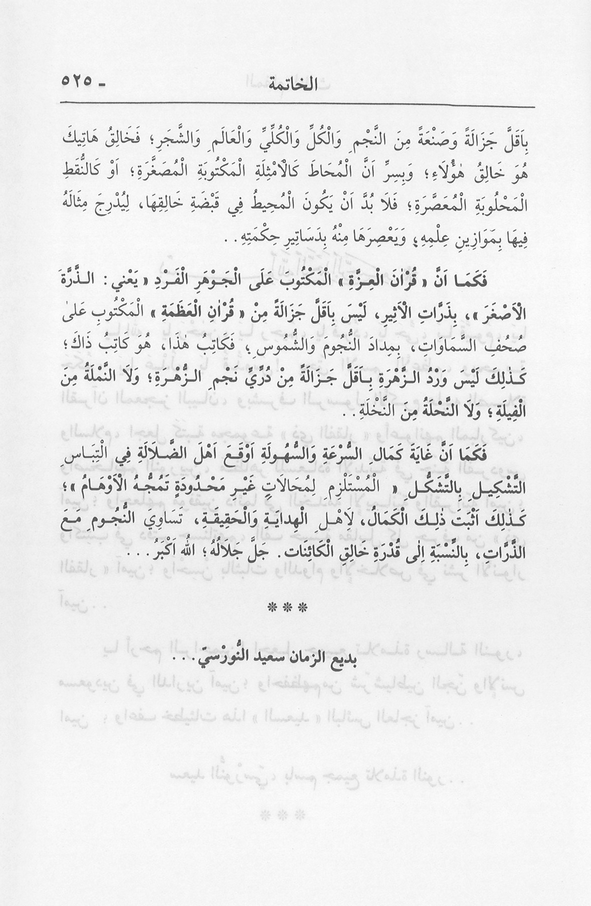 الخاتمة - ٥٢٥
بِاَقَلَّ جَزَالَةً وَصَنْعَةً مِنَ النَّجْمِ وَالْكُلِّ وَالْكُلِّيِّ وَالْعَالَمِ وَالشَّجَرِ؛ فَخَالِقُ هَاتِيكَ
هُوَ خَالِقُ هٰؤُلَاءِ؛ وَبِسِرِّ اَنَّ الْمُحَاطَ كَالْاَمْثِلَةِ الْمَكْتُوبَةِ الْمُصَغَّرَةِ؛ اَوْ كَالنُّقَطِ
الْمَحْلُوبَةِ الْمُعَصَّرَةِ؛ فَلَا بُدَّ اَنْ يَكُونَ الْمُحِيطُ فِي قَبْضَةِ خَالِقِهَا، لِيُدْرِجَ مِثَالَهُ
فِيهَا بِمَوَازِينِ عِلْمِهِ؛ وَيَعْصِرَهَا مِنْهُ بِدَسَاتِيرِ حِكْمَتِهِ..
فَكَمَا اَنَّ « قُرْاٰنَ الْعِزَّةِ » الْمَكْتُوبَ عَلَى الْجَوْهَرِ الْفَرْدِ « يَعْنِي: الذَّرَّةَ
الْاَصْغَرَ »، بِذَرَّاتِ الْاَثِيرِ، لَيْسَ بِاَقَلَّ جَزَالَةً مِنْ « قُرْاٰنِ الْعَظَمَةِ » الْمَكْتُوبِ عَلٰى
صُحُفِ السَّمٰاوَاتِ، بِمِدَادِ النُّجُومِ وَالشُّمُوسِ؛ فَكَاتِبُ هٰذَا، هُوَ كَاتِبُ ذَاكَ؛
كَذٰلِكَ لَيْسَ وَرْدُ الزَّهْرَةِ بِاَقَلَّ جَزَالَةً مِنْ دُرِّيِّ نَجْمِ الزُّهْرَةِ؛ وَلَا النَّمْلَةُ مِنَ
الْفِيلَةِ؛ وَلَا النَّحْلَةُ مِنَ النَّخْلَةِ..
فَكَمَا اَنَّ غَايَةَ كَمَالِ السُّرْعَةِ وَالسُّهُولَةِ اَوْقَعَ اَهْلَ الضَّلَالَةِ فِي الْتِبَاسِ
التَّشْكِيلِ بِالتَّشَكُّلِ « الْمُسْتَلْزِمِ لِمُحَالَاتٍ غَيْرِ مَحْدُودَةٍ تَمُجُّهُ الْاَوْهَامُ »؛
كَذٰلِكَ اَثْبَتَ ذٰلِكَ الْكَمَالُ، لِاَهْلِ الْهِدَايَةِ وَالْحَقِيقَةِ، تَسَاوِيَ النُّجُومِ مَعَ
الذَّرَّاتِ، بِالنِّسْبَةِ اِلٰى قُدْرَةِ خَالِقِ الْكَائِنَاتِ. جَلَّ جَلَالُهُ؛ اَللهُ اَكْبَرُ...
***
بديع الزمان سعيد النُّورْسيّ...